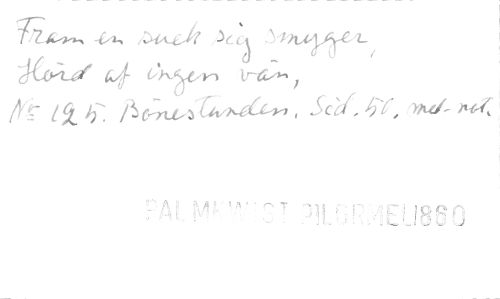 Fram en suck sig smyger,
Hörd af ingen vän,
No 125. Bönestunden. Sid. 50. med not.
PALMKWIST PILGRMEL1860